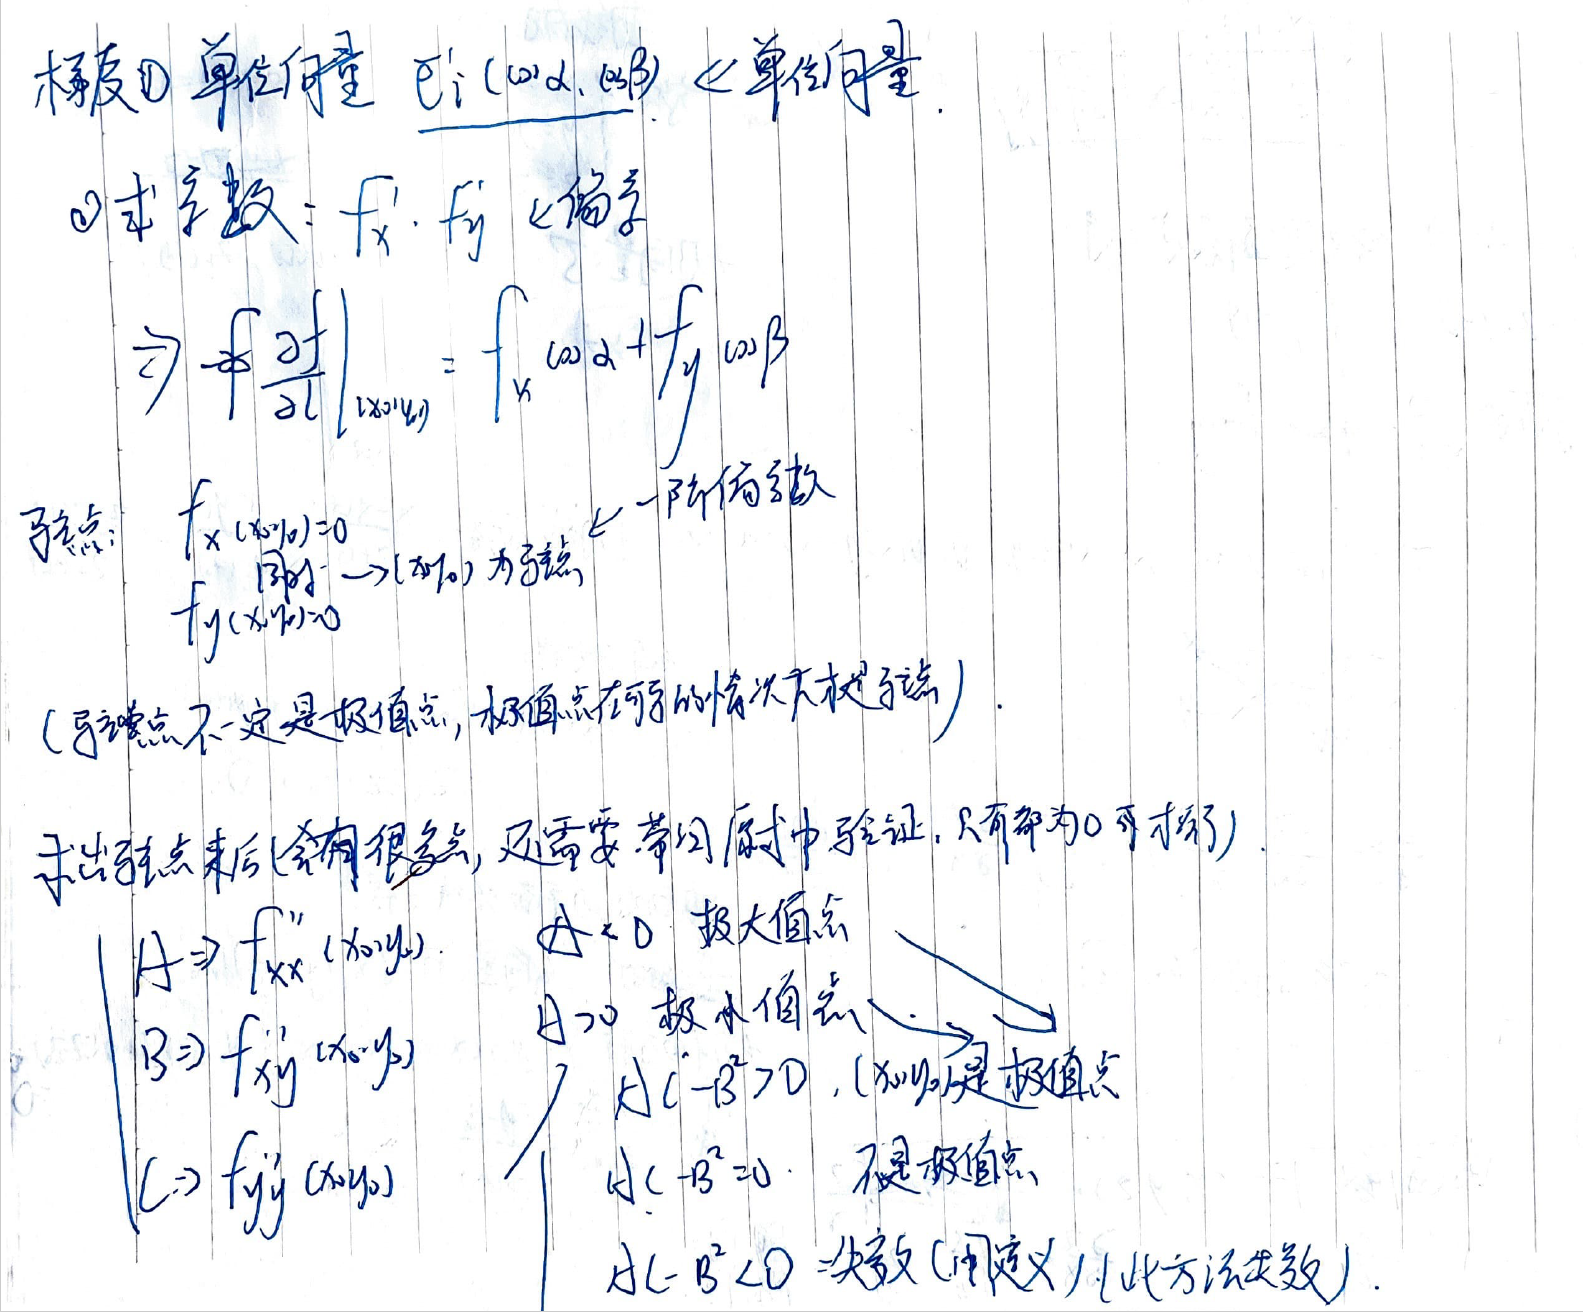 梯度① 单位向量 e_i (cosα, cosβ) ← 单位向量.
② 求导数: f'x · f'y ← 偏导
⇒ ∂f/∂l |(x0,y0) = fx cosα + fy cosβ
驻点: fx(x0,y0)=0 ← 一阶偏导数
同时 → (x0,y0) 为驻点
fy(x0,y0)=0
(驻点不一定是极值点, 极值点在可导的情况下才是驻点).
求出驻点来后(会有很多点, 还需要带回原式中验证, 只有都为0才行).
A ⇒ f''xx (x0,y0). A<0 极大值点
A>0 极小值点
B ⇒ f''xy (x0,y0)
AC-B²>0, (x0,y0)是极值点
C ⇒ f''yy (x0,y0) AC-B²=0. 不是极值点
AC-B²<0 ⇒ 失效 (用定义) (此方法失效).